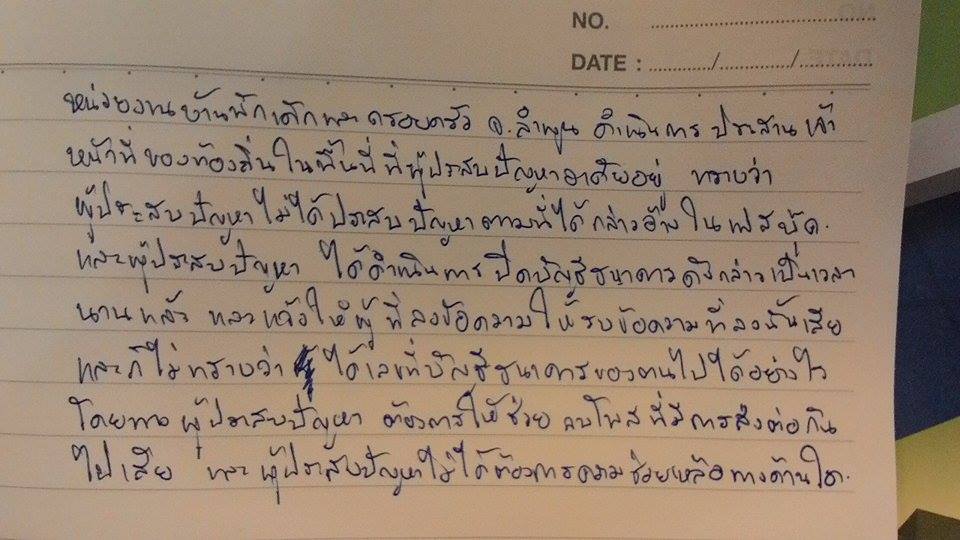 NO.
DATE : ............/............/............
หน่วยงานบ้านพักเด็กและครอบครัว จ.ลำพูน ดำเนินการ ประสาน เจ้า
หน้าที่ของท้องถิ่นในพื้นที่ที่ผู้ประสบปัญหาอาศัยอยู่ ทราบว่า
ผู้ประสบปัญหาไม่ได้ประสบปัญหาตามที่ได้กล่าวอ้างในเฟสบุ๊ค.
และผู้ประสบปัญหา ได้ดำเนินการปิดบัญชีธนาคารดังกล่าวเป็นเวลา
นานแล้ว และแจ้งให้ผู้ที่ลงข้อความให้ลบข้อความที่ลงนั้นเสีย
และก็ไม่ทราบว่า ได้เลขที่บัญชีธนาคารของตนไปได้อย่างไร
โดยทาง ผู้ประสบปัญหา ต้องการให้ช่วย ลบโพสที่มีการส่งต่อกัน
ไปเสีย และผู้ประสบปัญหาไม่ได้ต้องการความช่วยเหลือทางด้านใด.